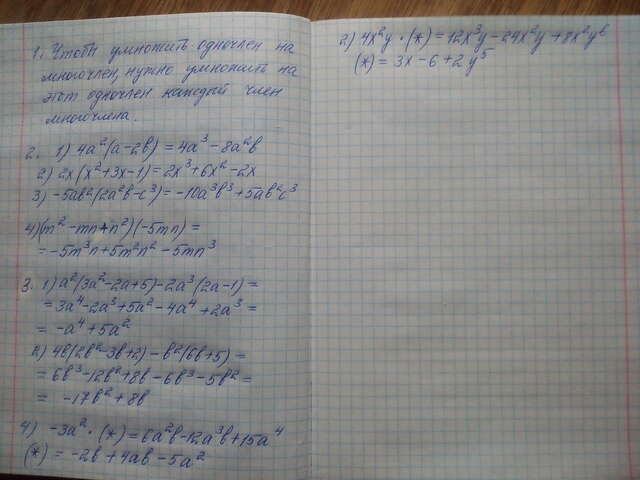 1. Чтобы умножить одночлен на
многочлен, нужно умножить на
этот одночлен каждый член
многочлена.
2. 1) 4a²(a-2b) = 4a³ - 8a²b
2) 2x(x²+3x-1) = 2x³+6x²-2x
3) -5ab²(2a²b-c³) = -10a³b³+5ab²c³
4) (m²-mn+n²)(-5mn) =
= -5m³n+5m²n²-5mn³
3. 1) a²(3a²-2a+5)-2a³(2a-1) =
= 3a⁴-2a³+5a²-4a⁴+2a³ =
= -a⁴+5a²
2) 4b(2b²-3b+2)-b²(6b+5) =
= 6b³-12b²+8b-6b³-5b² =
= -17b²+8b
4) -3a² · (*) = 6a²b-12a³b+15a⁴
(*) = -2b+4ab-5a²
2) 4x²y · (*) = 12x³y-24x²y+8x²y⁶
(*) = 3x-6+2y⁵